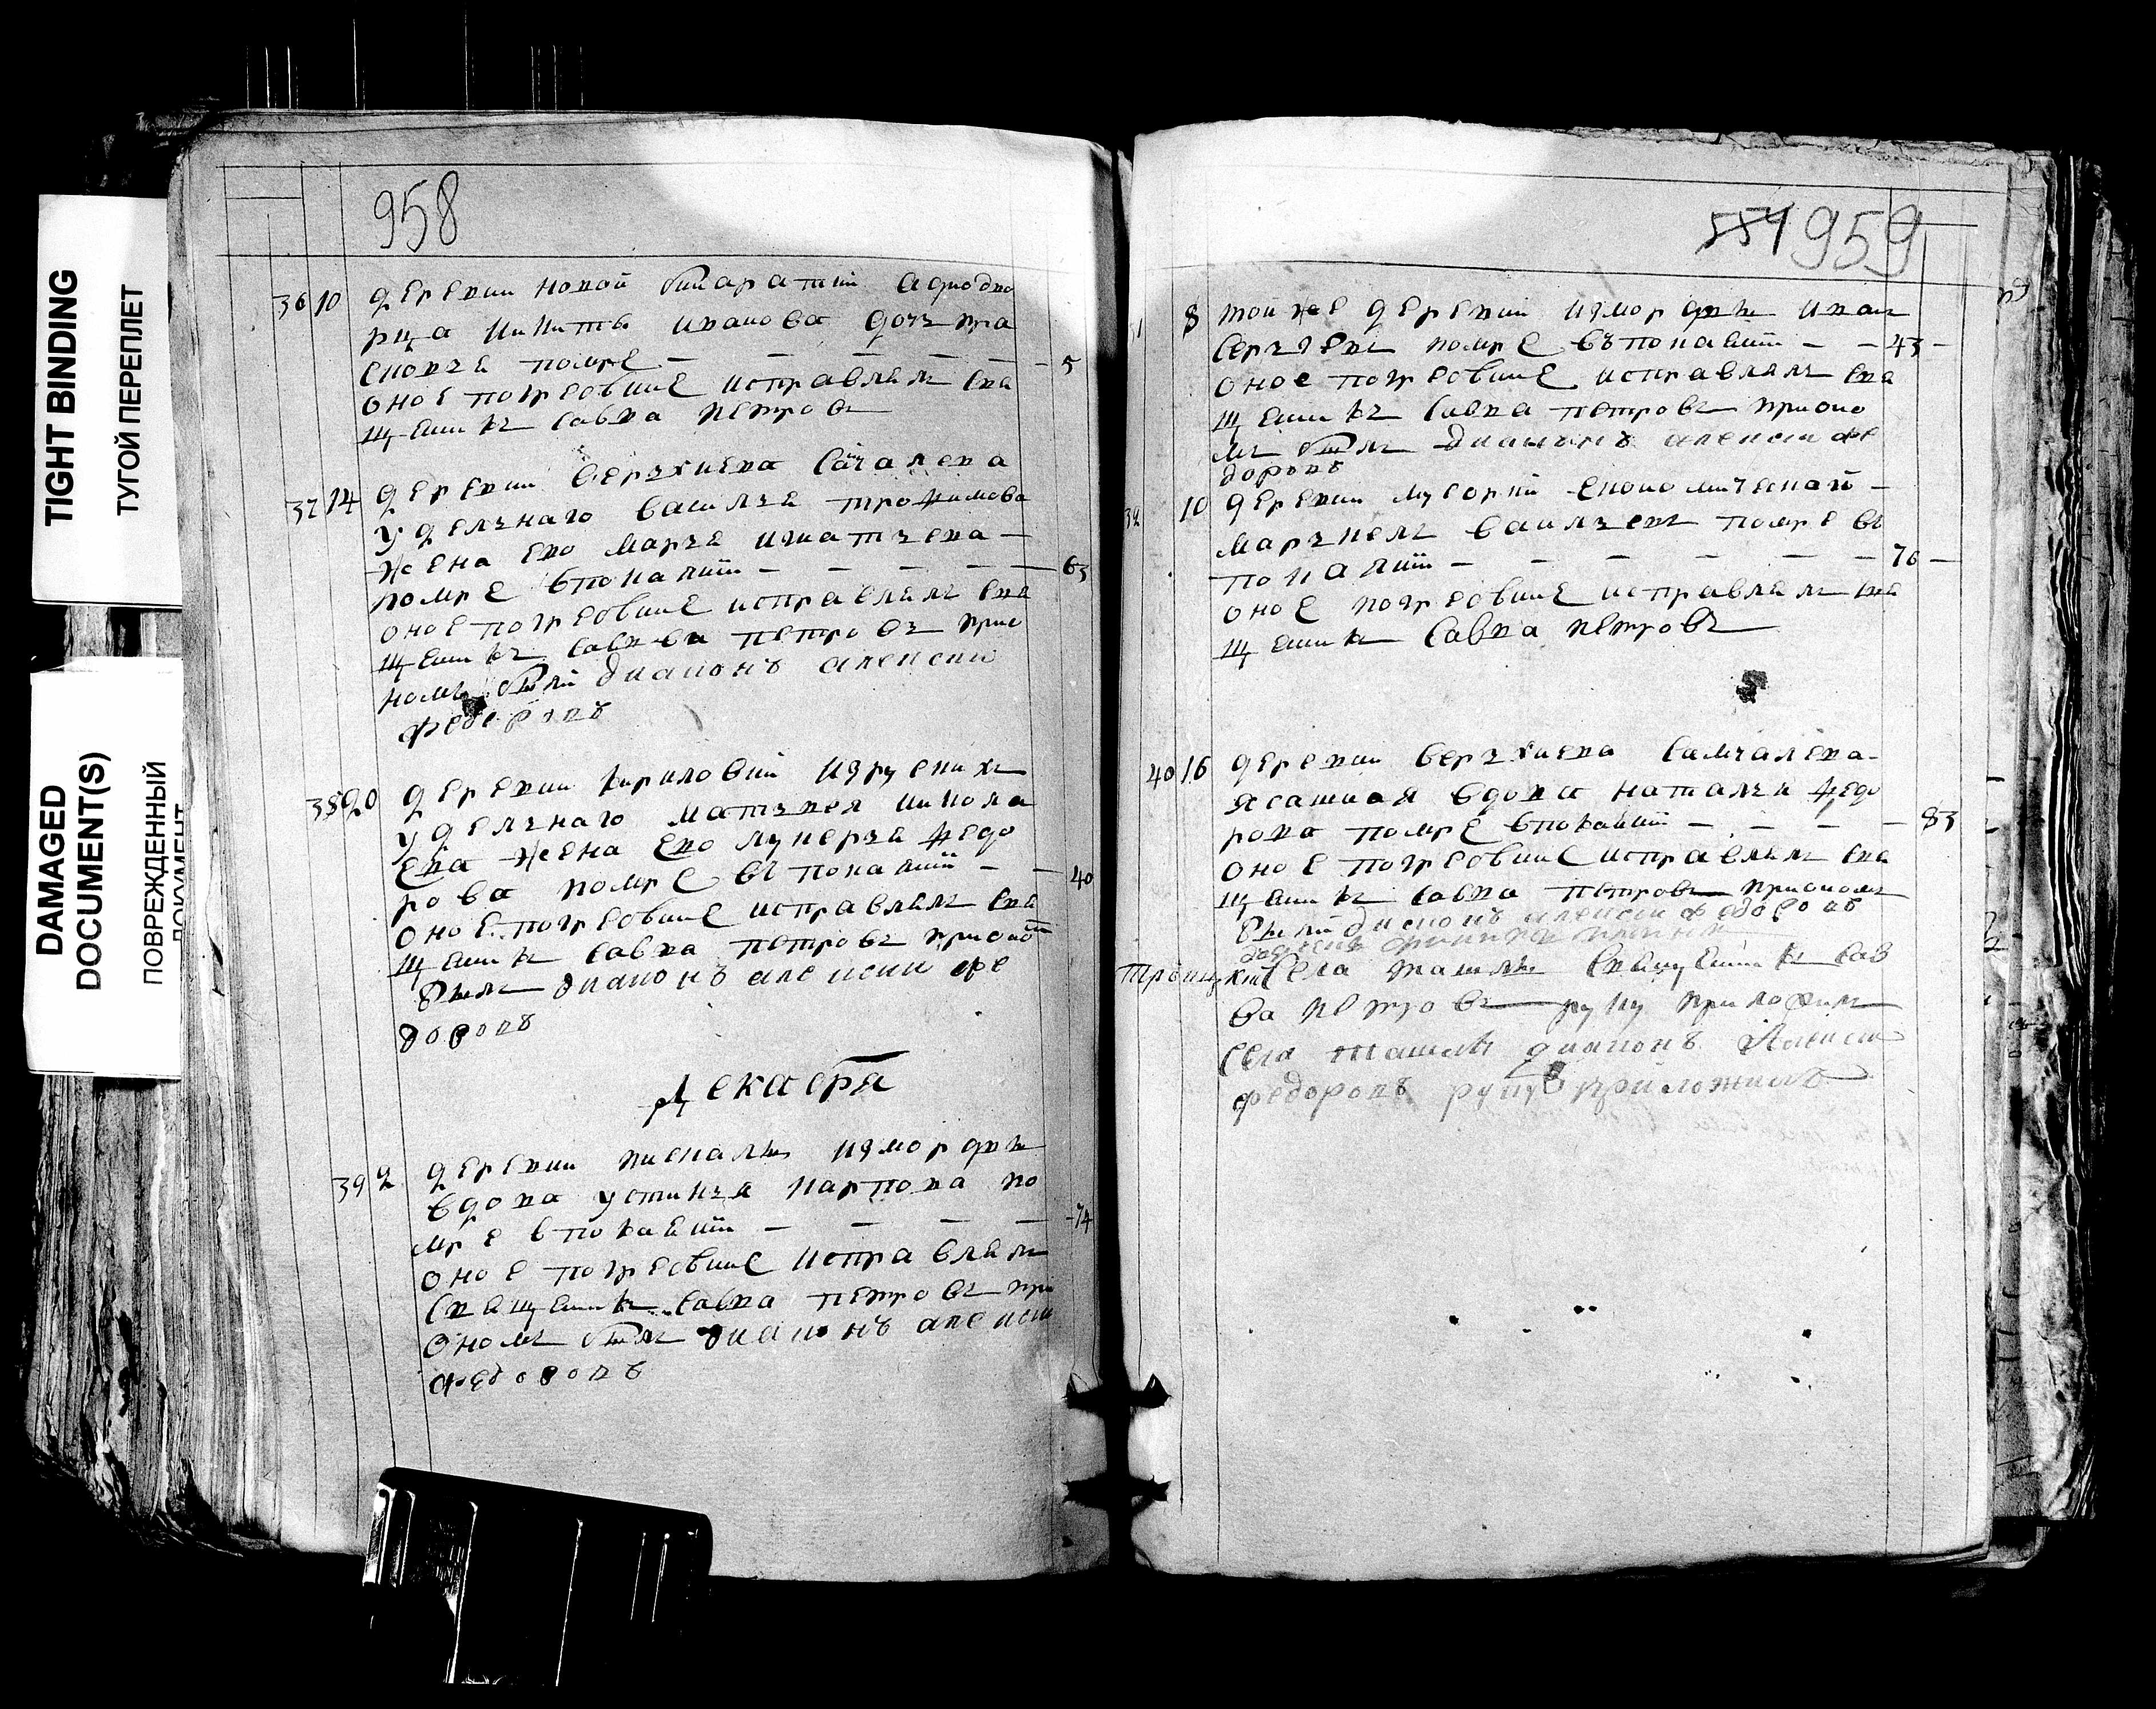 TIGHT BINDING
ТУГОЙ ПЕРЕПЛЕТ
DAMAGED
DOCUMENT(S)
ПОВРЕЖДЕННЫЙ
ДОКУМЕНТ
958
36 10 деревни новой
иванова дочь пра
сковья помре 5
оное погребение исправлялъ свя
щенникъ савва петровъ
37 14 деревни верхнева
удельнаго василья трофимова
жена ево марья игнатьева
помре впокаянии 63
оное погребение исправлялъ свя
щенникъ савва петровъ при о
номъ былъ диаконъ алексий
федоровъ
38 20 деревни кириловки
удельнаго матвея никола
ева жена ево лукерья федо
рова помре въ покаянии 40
оное погребение исправлялъ свя
щенникъ савва петровъ при оном
былъ диаконъ алексии фе
доровъ
Декабря
39 2 деревни
вдова устинья карпова по
мре впокаянии 74
оное погребение исправлялъ
священникъ савва петровъ при
ономъ былъ диаконъ алексии
федоровъ
959
8 той же деревни иван
сергеевъ помре въ покаянии 43
оное погребение исправлялъ свя
щенникъ савва петровъ при оно
мъ былъ диаконъ алексии фе
доровъ
10 деревни економической
васильевъ помре въ
покаянии 76
оное погребение исправлялъ свя
щенникъ савва петровъ
40 16 деревни верхнева
ясашная вдова наталья федо
рова помре впокаянии 83
оное погребение исправлялъ свя
щенникъ савва петровъ при ономъ
былъ диаконъ алексии федоровъ
села священникъ сав
ва петровъ руку приложилъ
села диаконъ Алексии
федоровъ руку приложилъ